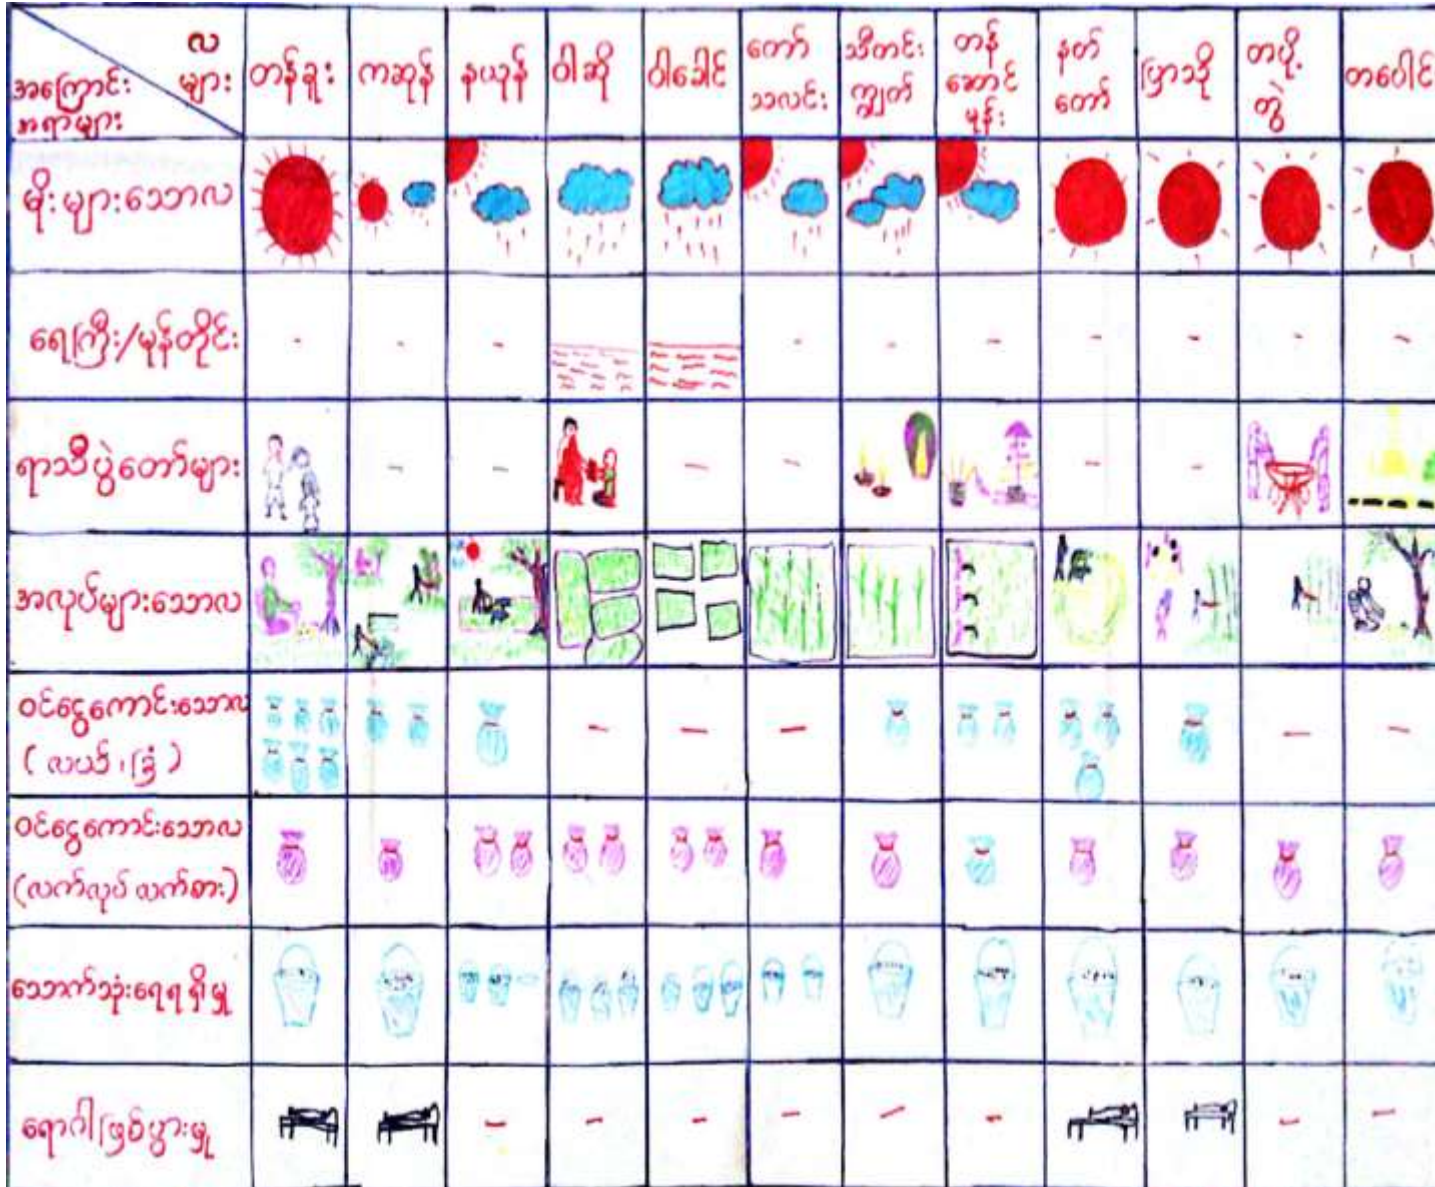 လ
များ
အကြောင်း
အရာများ
တန်ခူး
ကဆုန်
နယုန်
ဝါဆို
ဝါခေါင်
တော်
သလင်း
သီတင်း
ကျွတ်
တန်
ဆောင်
မုန်း
နတ်
တော်
ပြာသို
တပို့
တွဲ
တပေါင်း
မိုးများသောလ
ရေကြီး/မုန်တိုင်း
ရာသီပွဲတော်များ
အလုပ်များသောလ
ဝင်ငွေကောင်းသောလ
( လယ်၊ခြံ )
ဝင်ငွေကောင်းသောလ
(လက်လုပ် လက်စား)
သောက်သုံးရေရရှိမှု
ရောဂါဖြစ်ပွားမှု